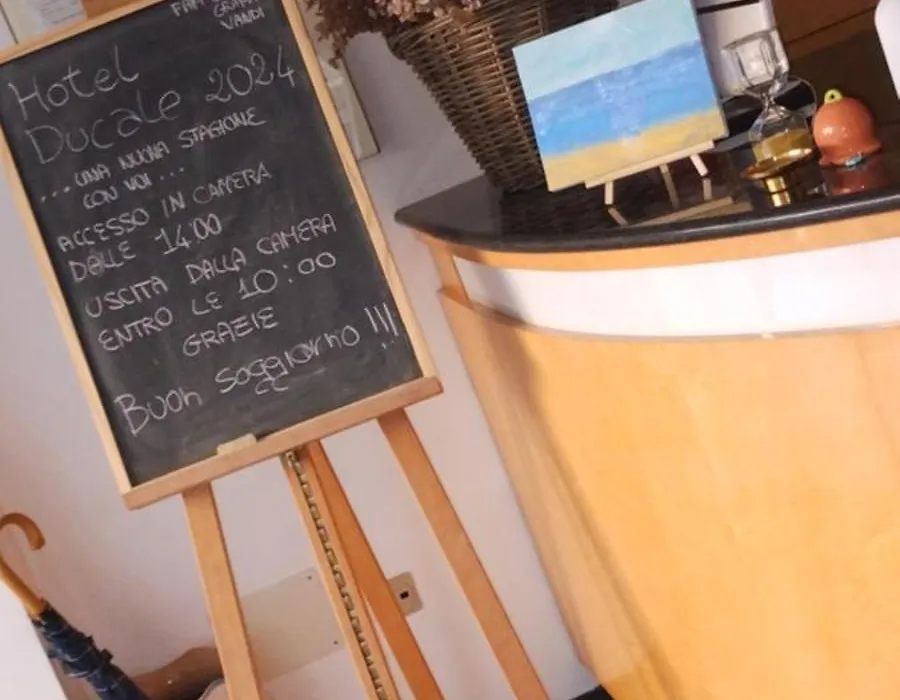 VANDI
Hotel
Ducale 2024
...UNA NUOVA STAGIONE
CON VOI ...
ACCESSO IN CAMERA
DALLE 14:00
USCITA DALLA CAMERA
ENTRO LE 10:00
GRAZIE
Buon soggiorno !!!